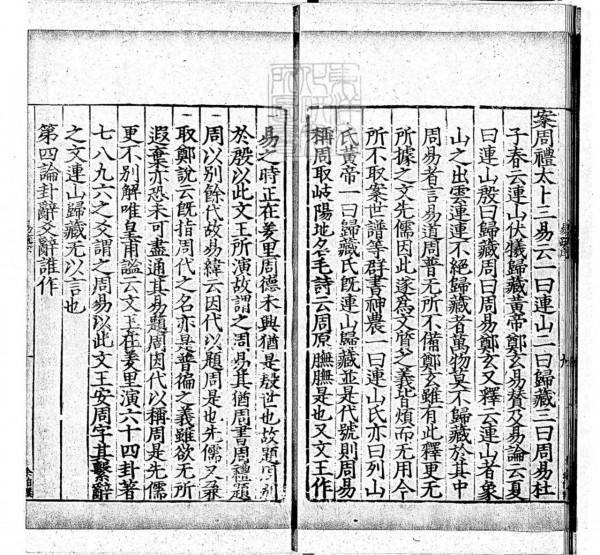 案周禮太卜三易云一曰連山二曰歸藏三曰周易杜
子春云連山伏犧歸藏黃帝鄭玄易賛及易論云夏
曰連山殷曰歸藏周曰周易鄭玄又釋云連山者象
山之出雲連連不絕歸藏者萬物莫不歸藏於其中
周易者言易道周普无所不備鄭玄雖有此釋更无
所據之文先儒因此遂為文質之義皆煩而无用今
所不取案世譜等群書神農一曰連山氏亦曰列山
氏黃帝一曰歸藏氏旣連山歸藏並是代號則周易
稱周取岐陽地名毛詩云周原膴膴是也又文王作
易之時正在羑里周德未興猶是殷世也故題周別
於殷以此文王所演故謂之周易其猶周書周禮題
周以別餘代故易緯云因代以題周是也先儒又兼
取鄭說云旣指周代之名亦是普徧之義雖欲无所
遐棄亦恐未可盡通其易題周因代以稱周是先儒
更不別解唯皇甫謐云文王在羑里演六十四卦著
七八九六之爻謂之周易以此文王安周字其繫辭
之文連山歸藏无以言也
第四論卦辭爻辭誰作